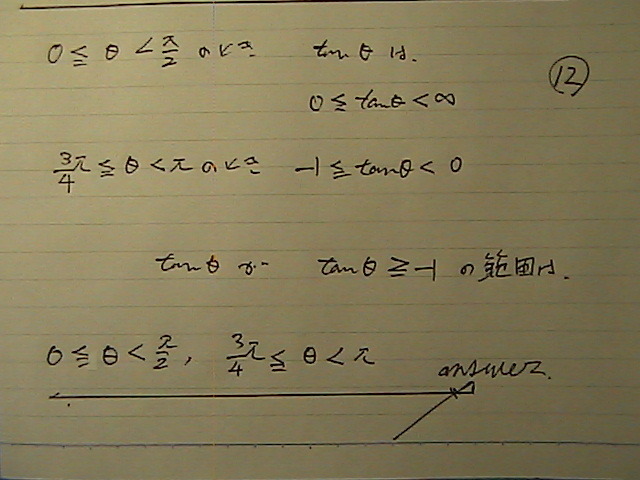 0 ≦ θ < π/2 のとき tanθ は.
⑫
0 ≦ tanθ < ∞
3/4 π ≦ θ < π のとき -1 ≦ tanθ < 0
tanθ が tanθ ≧ -1 の範囲は.
0 ≦ θ < π/2, 3/4 π ≦ θ < π
answer.